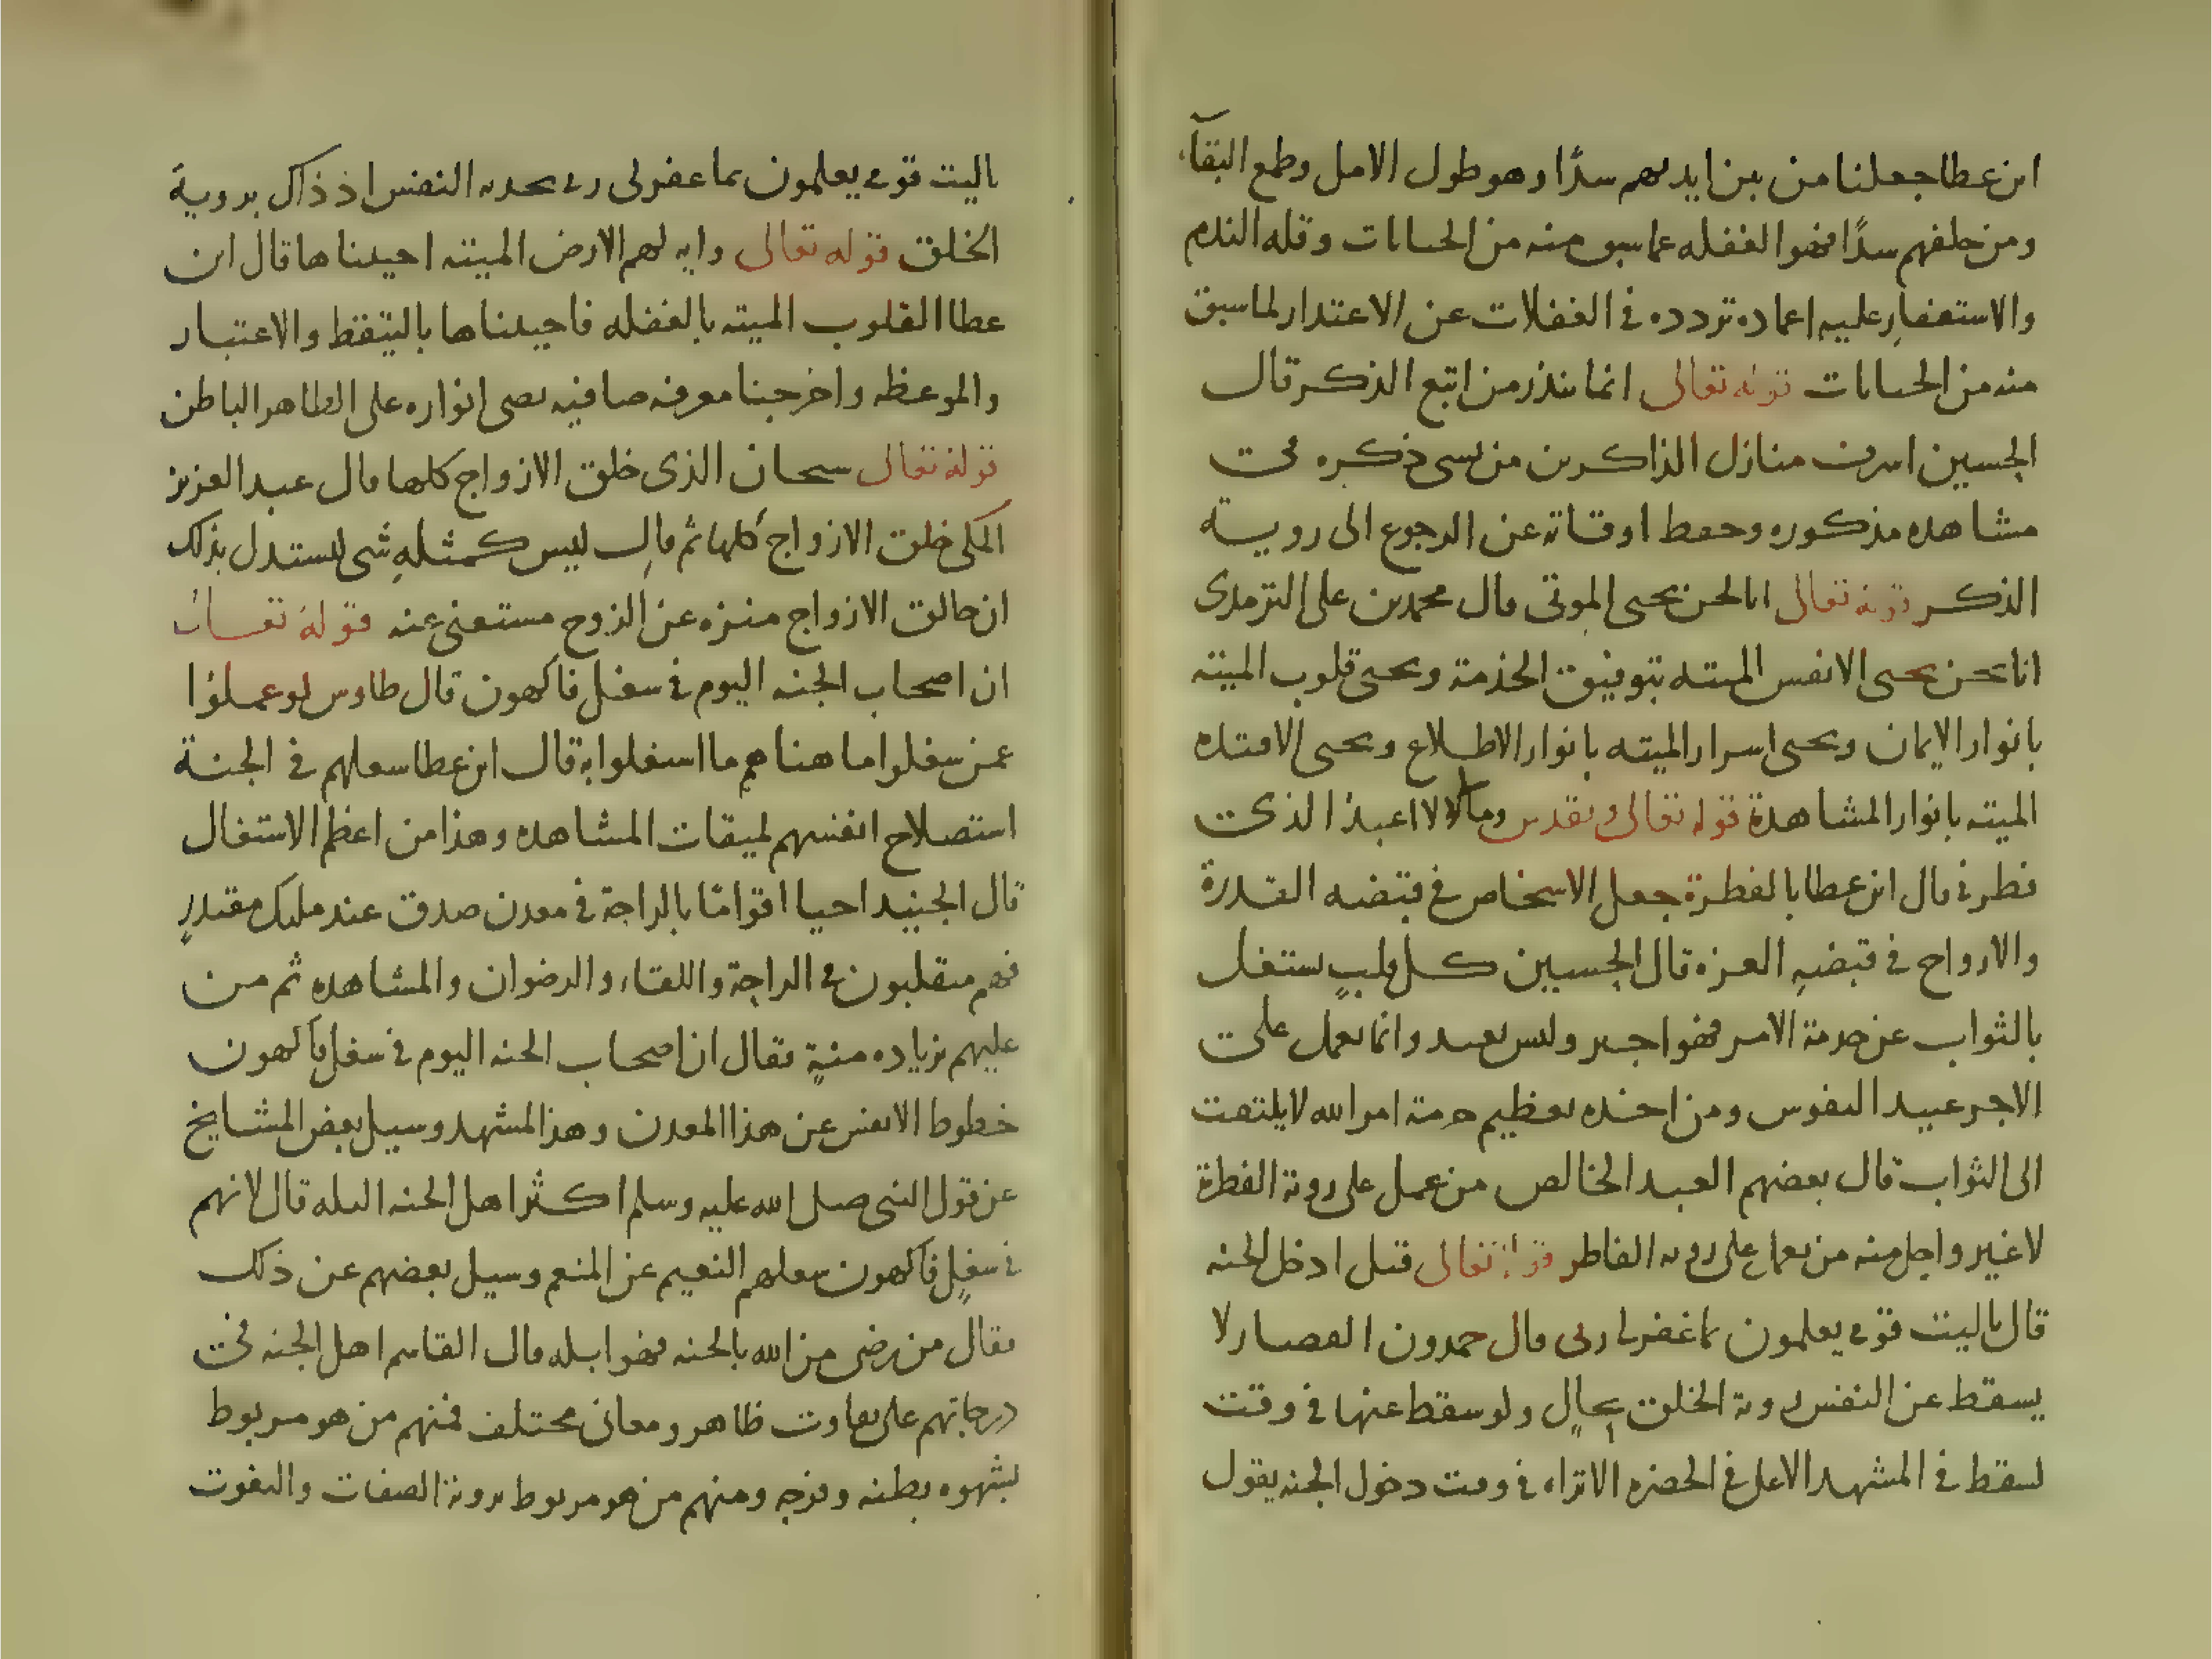 ابن عطا جعلنا من بين ايديهم سدًا وهو طول الامل وطمع البقآء
ومن خلفهم سدًا فهو الغفله عما سبق منه من الجنايات وقله الندم
والاستغفار عليه اعماده تردده في الغفلات عن الاعتدار لما سبق
منه من الجنايات قوله تعالى انما تنذر من اتبع الذكر قال
الحسين اشرف منازل الذاكرين من نسى ذكره تحت
مشاهده مذكوره وحفظ اوقاته عن الرجوع الى روية
الذكر قوله تعالى انا نحن نحيى الموتى قال محمد بن على الترمدى
انا نحن نحيى الانفس الميته بتوفيق الخدمة ونحيى قلوب الميته
بانوار الايمان ونحيى اسرار الميته بانوار الاطلاع ونحيى الافئده
الميته بانوار المشاهدة قوله تعالى وتقدس ومالى لا اعبد الذى
فطرنى قال ابن عطا بالفطرة جعل الاشخاص في قبضه القدرة
والارواح في قبضه العزه قال الحسين كل قلب يشتغل
بالثواب عن حرمة الامر فهو اجير وليس بعبد وانما يعمل على
الاجر عبيد النفوس ومن اخذه تعظيم حرمة امر الله لا يلتفت
الى الثواب قال بعضهم العبد الخالص من عمل على روية الفطرة
لا غير واجل منه من يعمل على روية الفاطر قوله تعالى قيل ادخل الجنه
قال ياليت قومى يعلمون بما غفر لى ربى قال حمدون القصار لا
يسقط عن النفس روية الخلق بحال ولو سقط عنها في وقت
لسقط في المشهد الاعلى في الحضره الا تراه في وقت دخول الجنه يقول
ياليت قومى يعلمون بما غفر لى ربى يحدث النفس اذ ذاك بروية
الخلق قوله تعالى وايه لهم الارض الميته احييناها قال ابن
عطا القلوب الميته بالغفله فاحييناها بالتيقظ والاعتبار
والموعظه واخرجنا معرفه صافيه تضى انواره على الظاهر الباطن
قوله تعالى سبحان الذى خلق الازواج كلها قال عبد العزيز
المكى خلق الازواج كلها ثم قال ليس كمثله شى ليستدل بذلك
ان خالق الازواج منزه عن الزوج مستغنى عنه قوله تعالى
ان اصحاب الجنه اليوم في شغل فاكهون قال طاوس لو عملوا
عمن شغلوا ما هناهم ما اشتغلوا به قال ابن عطا شغلهم في الجنة
استصلاح انفسهم لميقات المشاهده وهذا من اعظم الاشتغال
قال الجنيد احيا اقوامًا بالراحة في معدن صدق عند مليك مقتدر
فهم متقلبون في الراحة واللقاء والرضوان والمشاهده ثم من
عليهم بزياده منيةٍ فقال ان اصحاب الجنه اليوم في شغل فاكهون
خطوط الانفس عن هذا المعدن وهذا المشهد وسيل بعض المشايخ
عن قول النبى صلى الله عليه وسلم اكثر اهل الجنه البله قال لانهم
في شغل فاكهون شغلهم النعيم عن المنعم وسيل بعضهم عن ذلك
فقال من رضى من الله بالجنه فهو ابله قال القاسم اهل الجنه تحت
درجاتهم على تفاوت ظاهر ومعانى مختلف فمنهم من هو مربوط
بشهوه بطنه وفرجه ومنهم من هو مربوط بروية الصفات والنعوت